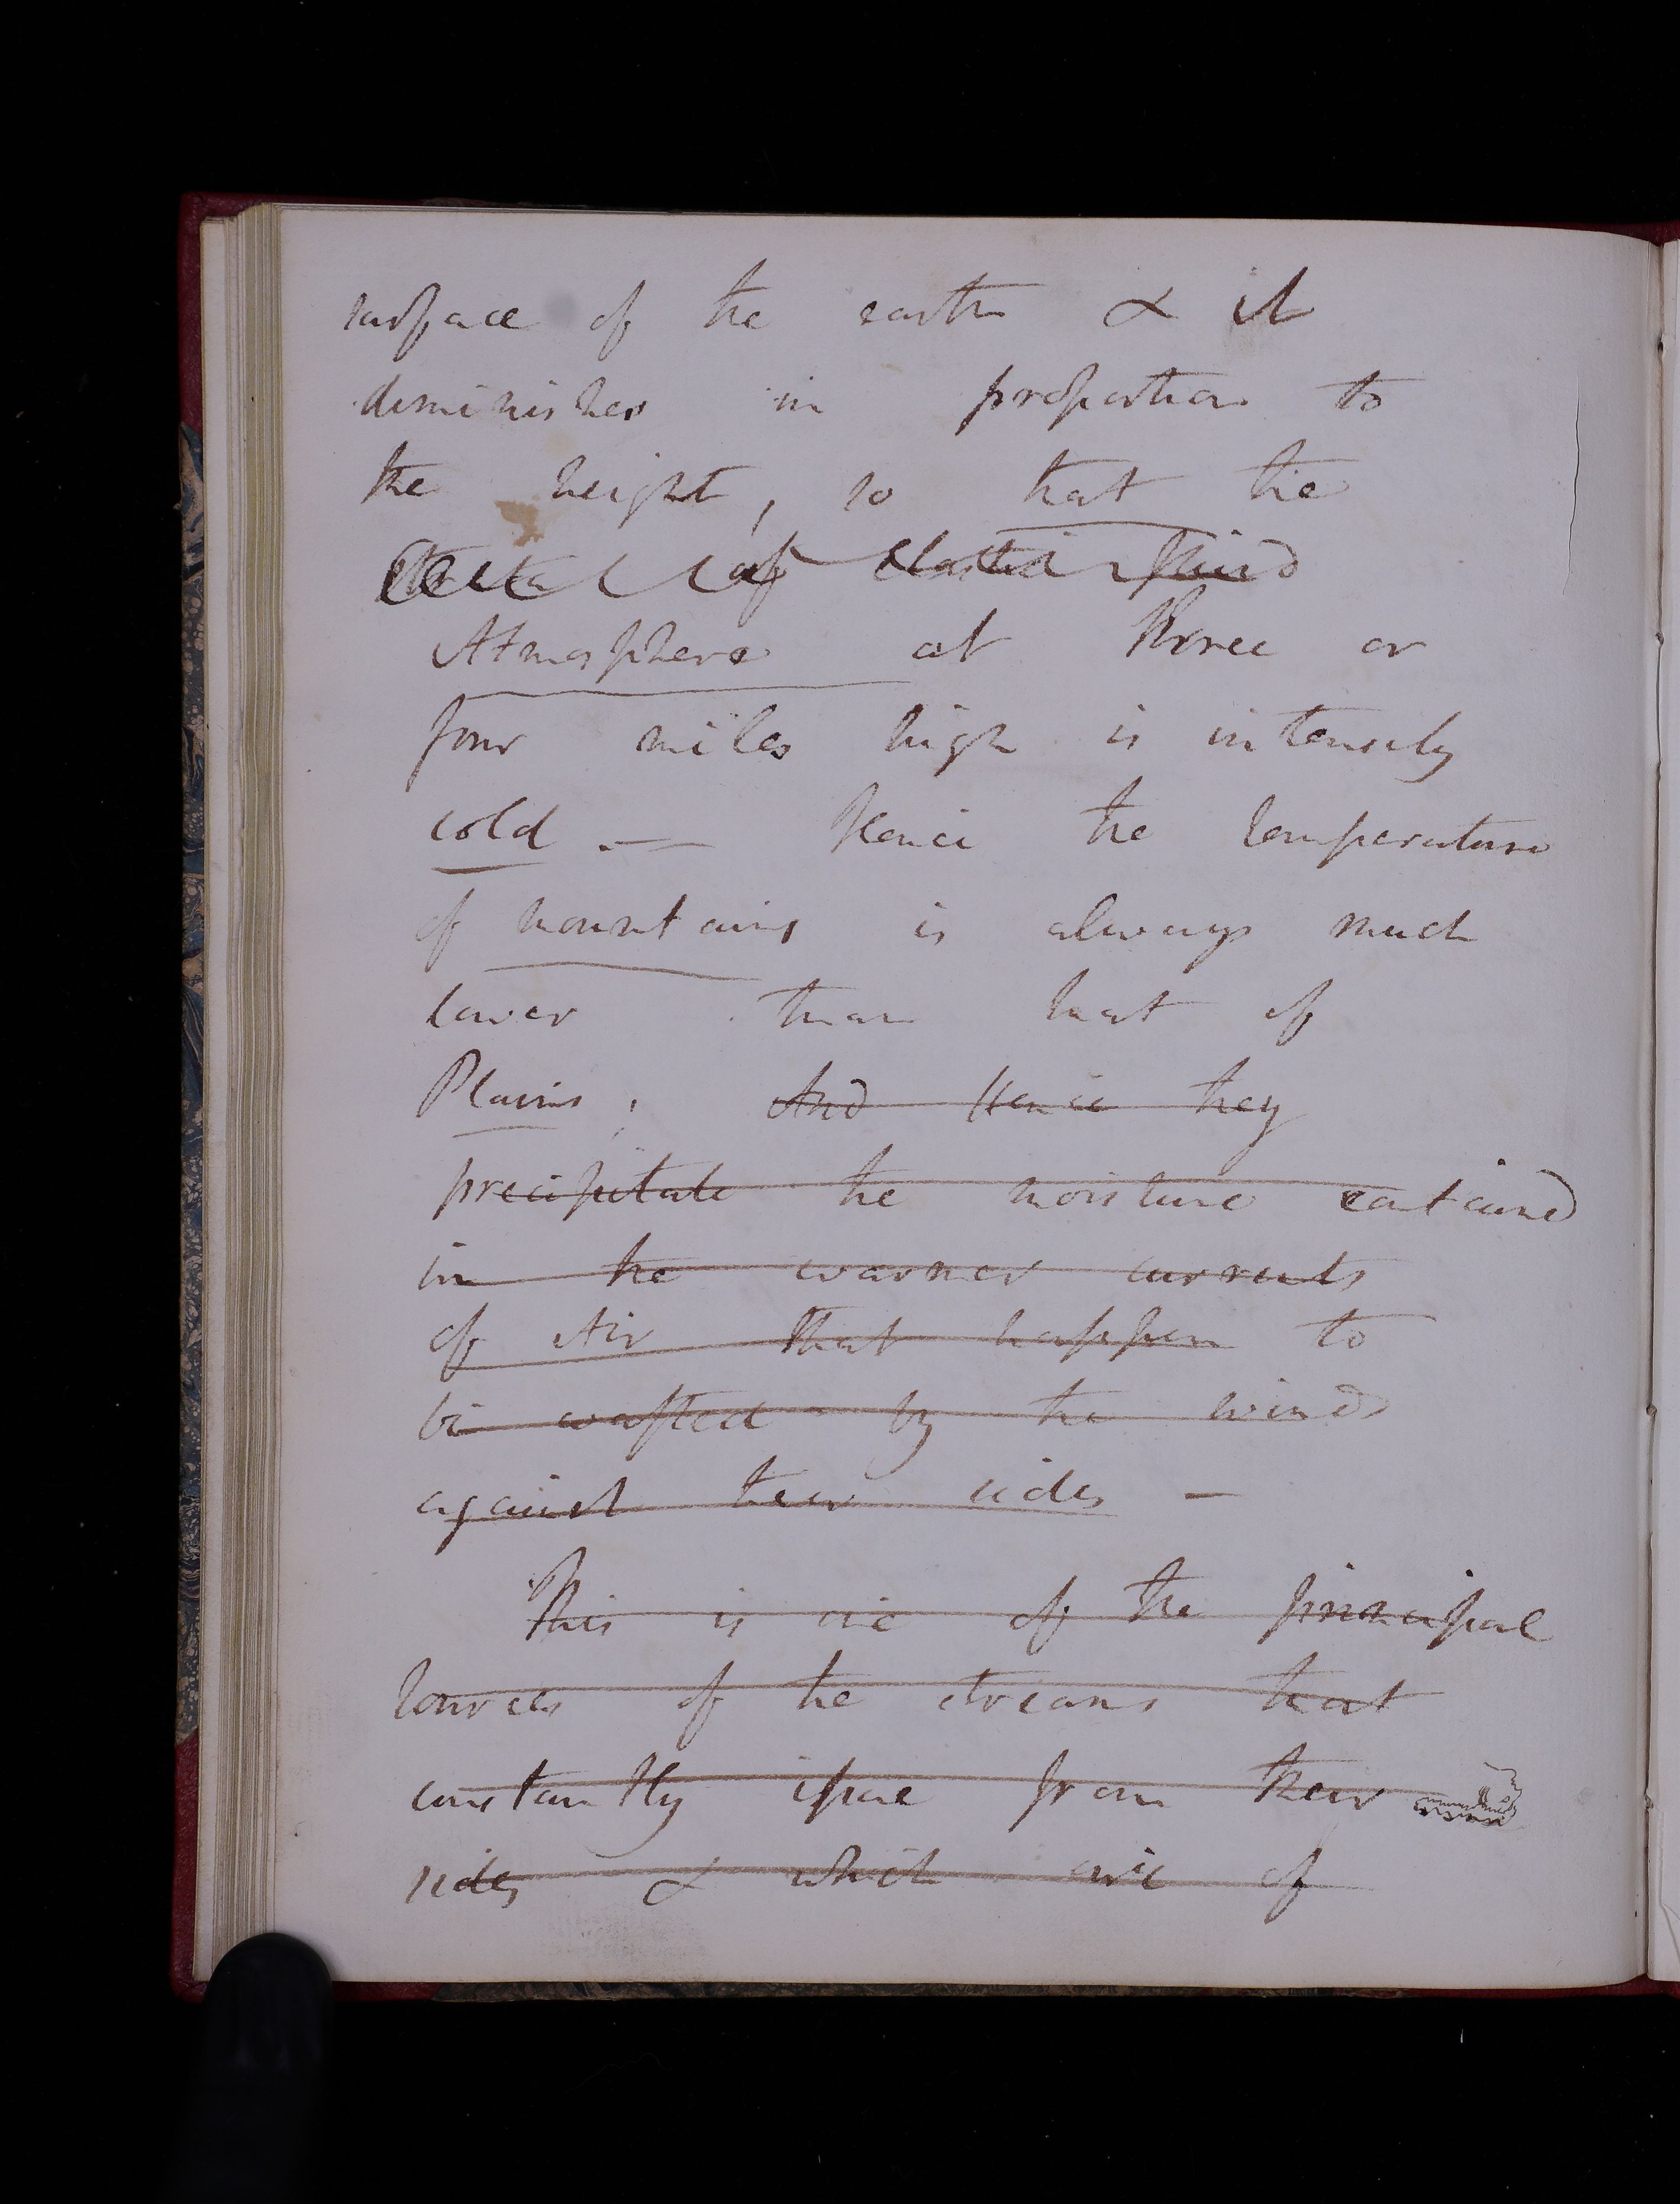 surface of the earth & it
diminishes in proportion to
the height, so that the
of elastic fluid
Atmosphere at three or
four miles high is intensely
cold — Hence the temperature
of mountains is always much
lower than that of
Plains; And Hence they
precipitate the moisture contained
in the warmer currents
of Air that happen to
be wafted by the winds
against their sides —
This is one of the principal
sources of the streams that
constantly issue from their
sides & which are of